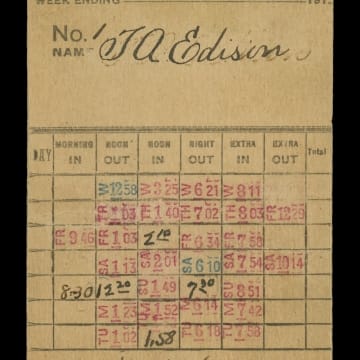 WEEK ENDING 191
No. 1
NAME T A Edison
DAY MORNING IN NOON OUT NOON IN NIGHT OUT EXTRA IN EXTRA OUT Total
W 12 58 W 3 25 W 6 21 W 8 11
FR 1 03 TH 1 40 TH 7 02 TH 8 03 FR 12 29
FR 9 46 FR 1 03 2 10 FR 6 34 FR 7 58
SA 1 13 SA 2 01 SA 6 10 SA 7 54 SA 10 14
8-30 12 20 SU 1 49 7 30 SU 8 51
M 1 23 M 1 52 M 6 14 M 7 42
TU 1 02 1.58 TU 6 18 TU 7 58